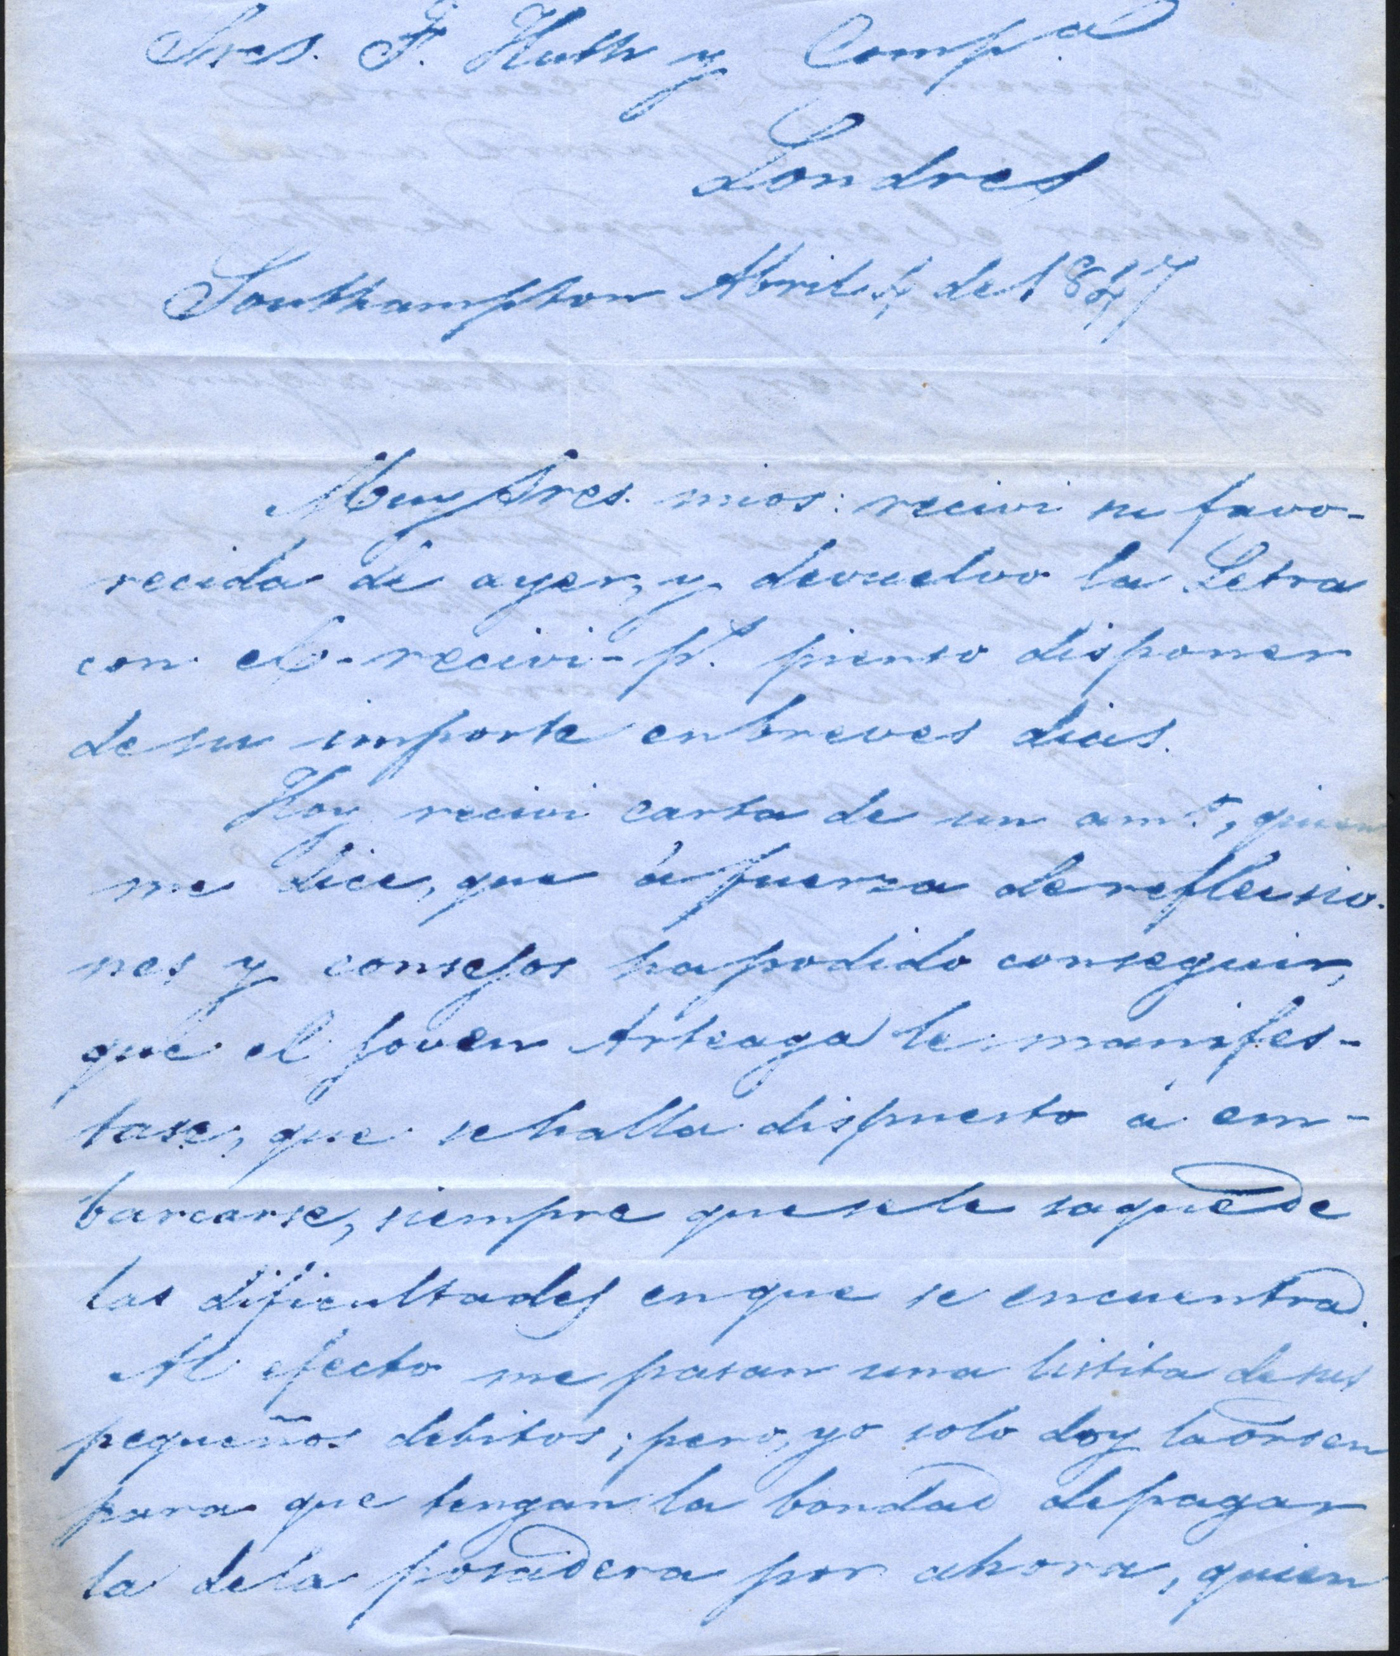 Sres. F. Huth y Comp.a
Londres
Southampton Abril 4 de 1847
Muy Sres. mios: recivi su favo-
recida de ayer, y devuelvo la Letra
con el recivi p.r pienso disponer
de su importe en breves dias.
Hoy recivi carta de un am.o, quien
me dice, que á fuerza de reflecsio-
nes y consejos ha podido conseguir,
que el joven Arteaga le manifes-
tase, que se halla dispuesto á em-
barcarse, siempre que se le saque de
las dificultades en que se encuentra.
Al efecto me pasan una listita de sus
pequeños debitos; pero, yo solo doy la orden
para que tengan la bondad de pagar
la de la posadera por ahora, quien